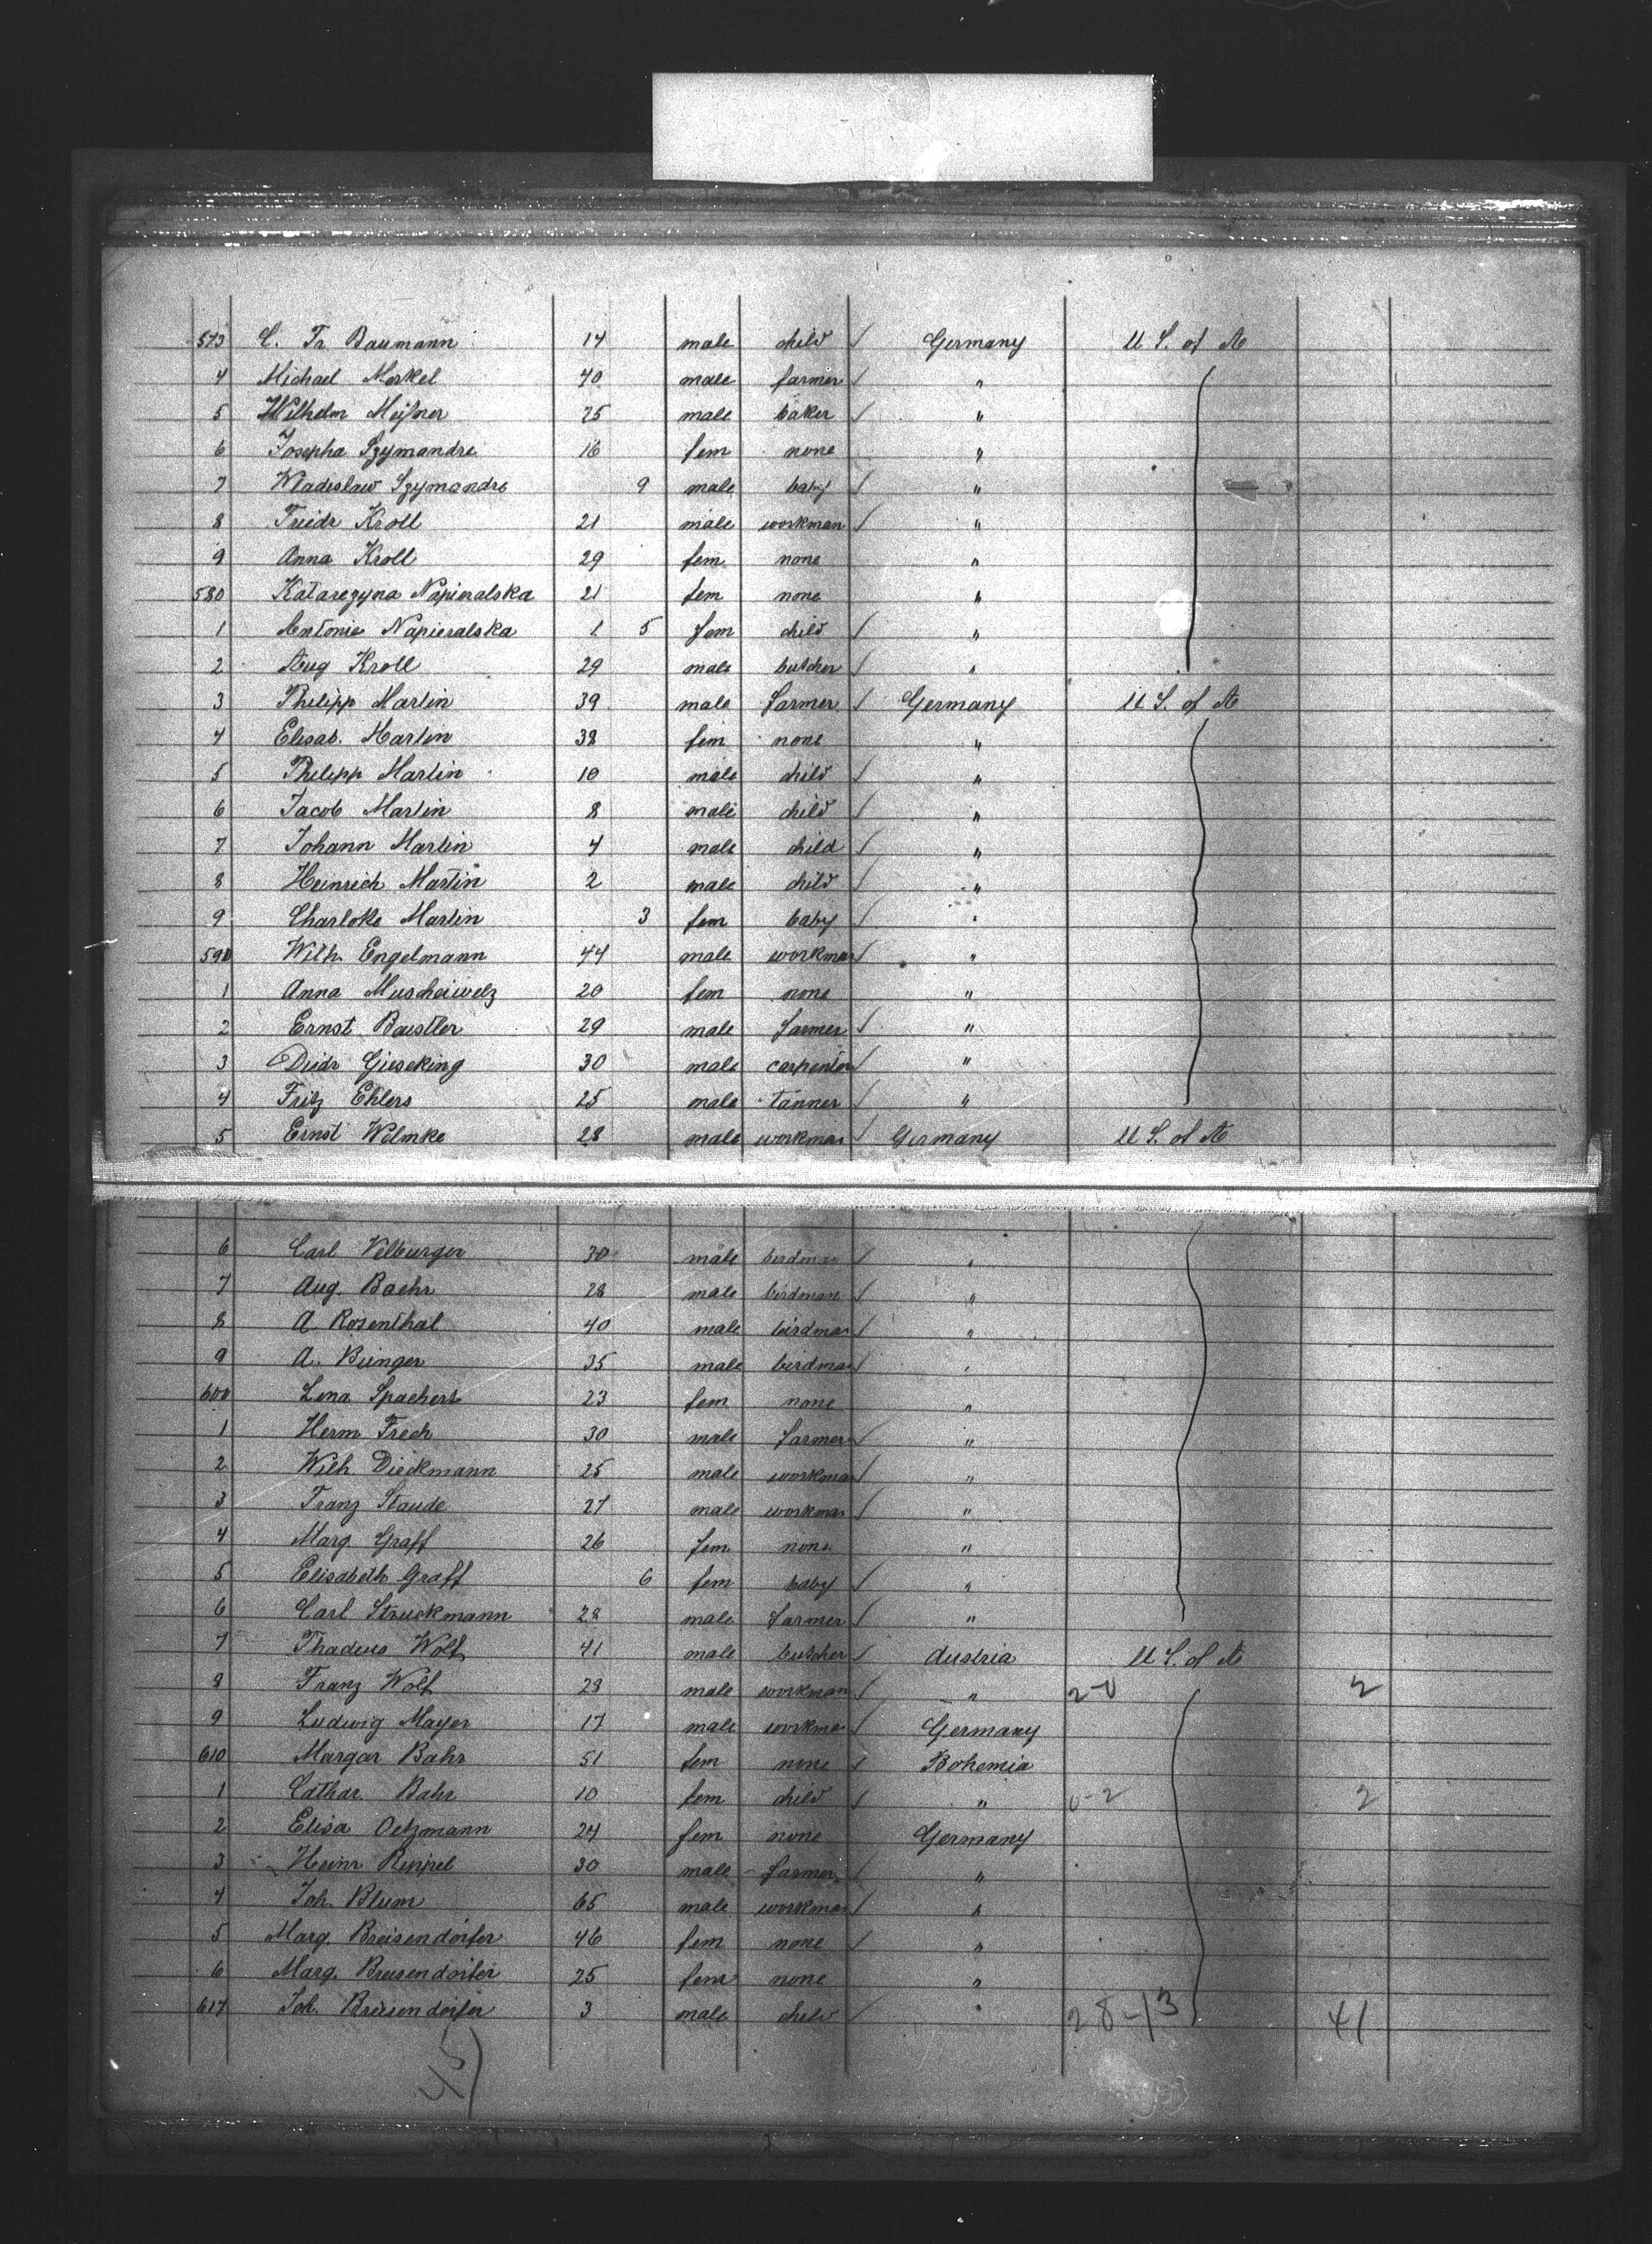 573 C. Fr. Baumann 14 male child / Germany U S. of A
4 Michael Merkel 40 male farmer / "
5 Wilhelm Meißner 25 male baker / "
6 Josepha Szymandre 16 fem none "
7 Wladislaw Szymandre 9 male baby / "
8 Friedr Kroll 21 male workman / "
9 Anna Kroll 29 fem none "
580 Katarezyna Napieralska 21 fem none "
1 Antonie Napieralska 1 5 fem child / "
2 Aug Kroll 29 male butcher / "
3 Philipp Martin 39 male farmer / Germany U S. of A
4 Elisab. Martin 38 fem none "
5 Philipp Martin 10 male child / "
6 Jacob Martin 8 male child / "
7 Johann Martin 4 male child / "
8 Heinrich Martin 2 male child / "
9 Charlotte Martin 3 fem baby / "
590 Wilh. Engelmann 44 male workman / "
1 Anna 20 fem none "
2 Ernst Baustler 29 male farmer / "
3 Diedr Gieseking 30 male carpenter / "
4 Fritz Ehlers 25 male tanner / "
5 Ernst Wilmke 28 male workman / Germany U S. of A
6 Carl Velburger 30 male birdman / "
7 Aug. Baehr 28 male birdman / "
8 A. Rosenthal 40 male birdman / "
9 A. Bünger 35 male birdman / "
600 Lena Spachert 23 fem none "
1 Herm Frech 30 male farmer / "
2 Wilh. Dieckmann 25 male workman / "
3 Franz Staude 27 male workman / "
4 Marg. Graff 26 fem none "
5 Elisabeth Graff 6 fem baby / "
6 Carl Struckmann 28 male farmer / "
7 Thadeus Wolf 41 male butcher / Austria U S. of A
8 Franz Wolf 28 male workman / " 2-0 2
9 Ludwig Mayer 17 male workman / Germany
610 Margar Bahr 51 fem none / Bohemia
1 Cathar Bahr 10 fem child / " 0-2 2
2 Elisa Oetzmann 24 fem none Germany
3 Heinr Rippel 30 male farmer / "
4 Joh. Blum 65 male workman / "
5 Marg. Breisendörfer 46 fem none / "
6 Marg. Breisendörfer 25 fem none "
617 Joh. Breisendörfer 3 male child / " 28-13 41
45)